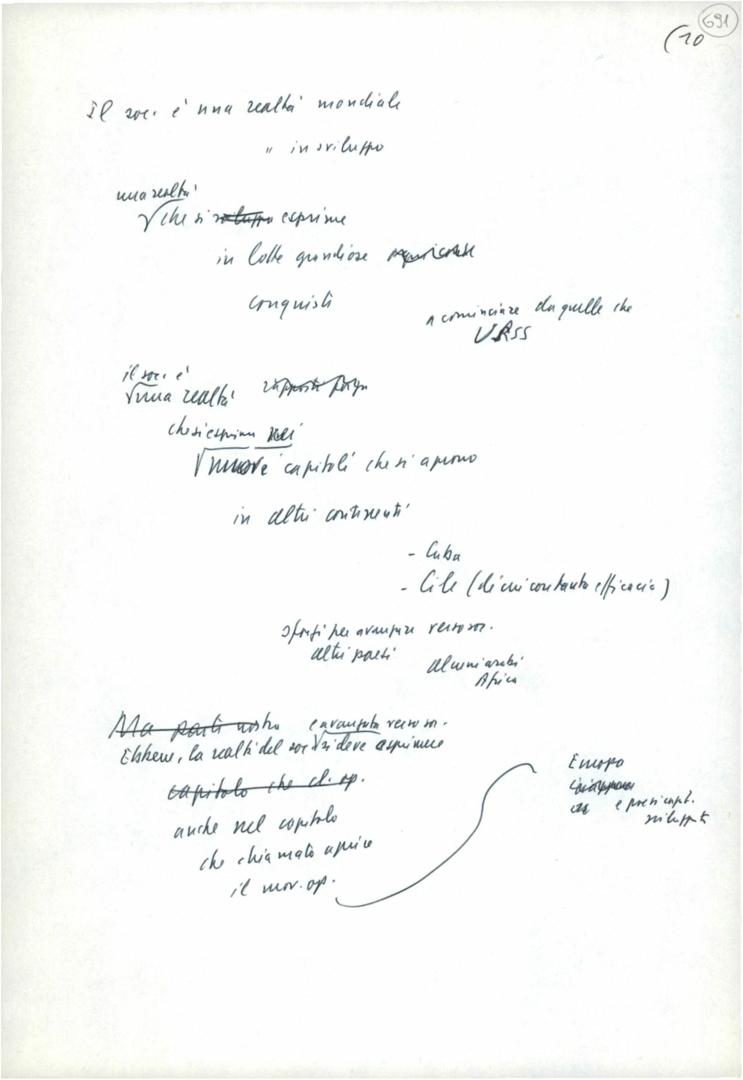 691
(10
Il soc. è una realtà mondiale
" in sviluppo
una realtà
√ che si sviluppa esprime
in lotte grandiose
conquisti
a cominciare da quelle che
URSS
il soc. è
√ una realtà
che si esprime nei
√ nuovi capitoli che si aprono
in altri continenti
- Cuba
- Cile (di cui con tanta efficacia)
sforzi per avanzare verso soc.
altri paesi
alcuni arabi
Africa
Ma parti nostra e avanzata verso soc.
Ebbene, la realtà del soc √ si deve esprimere
capitolo che cl. op.
anche nel capitolo
che chiamato aprire
il mov. op.
Europa
e paesi capit.
sviluppati